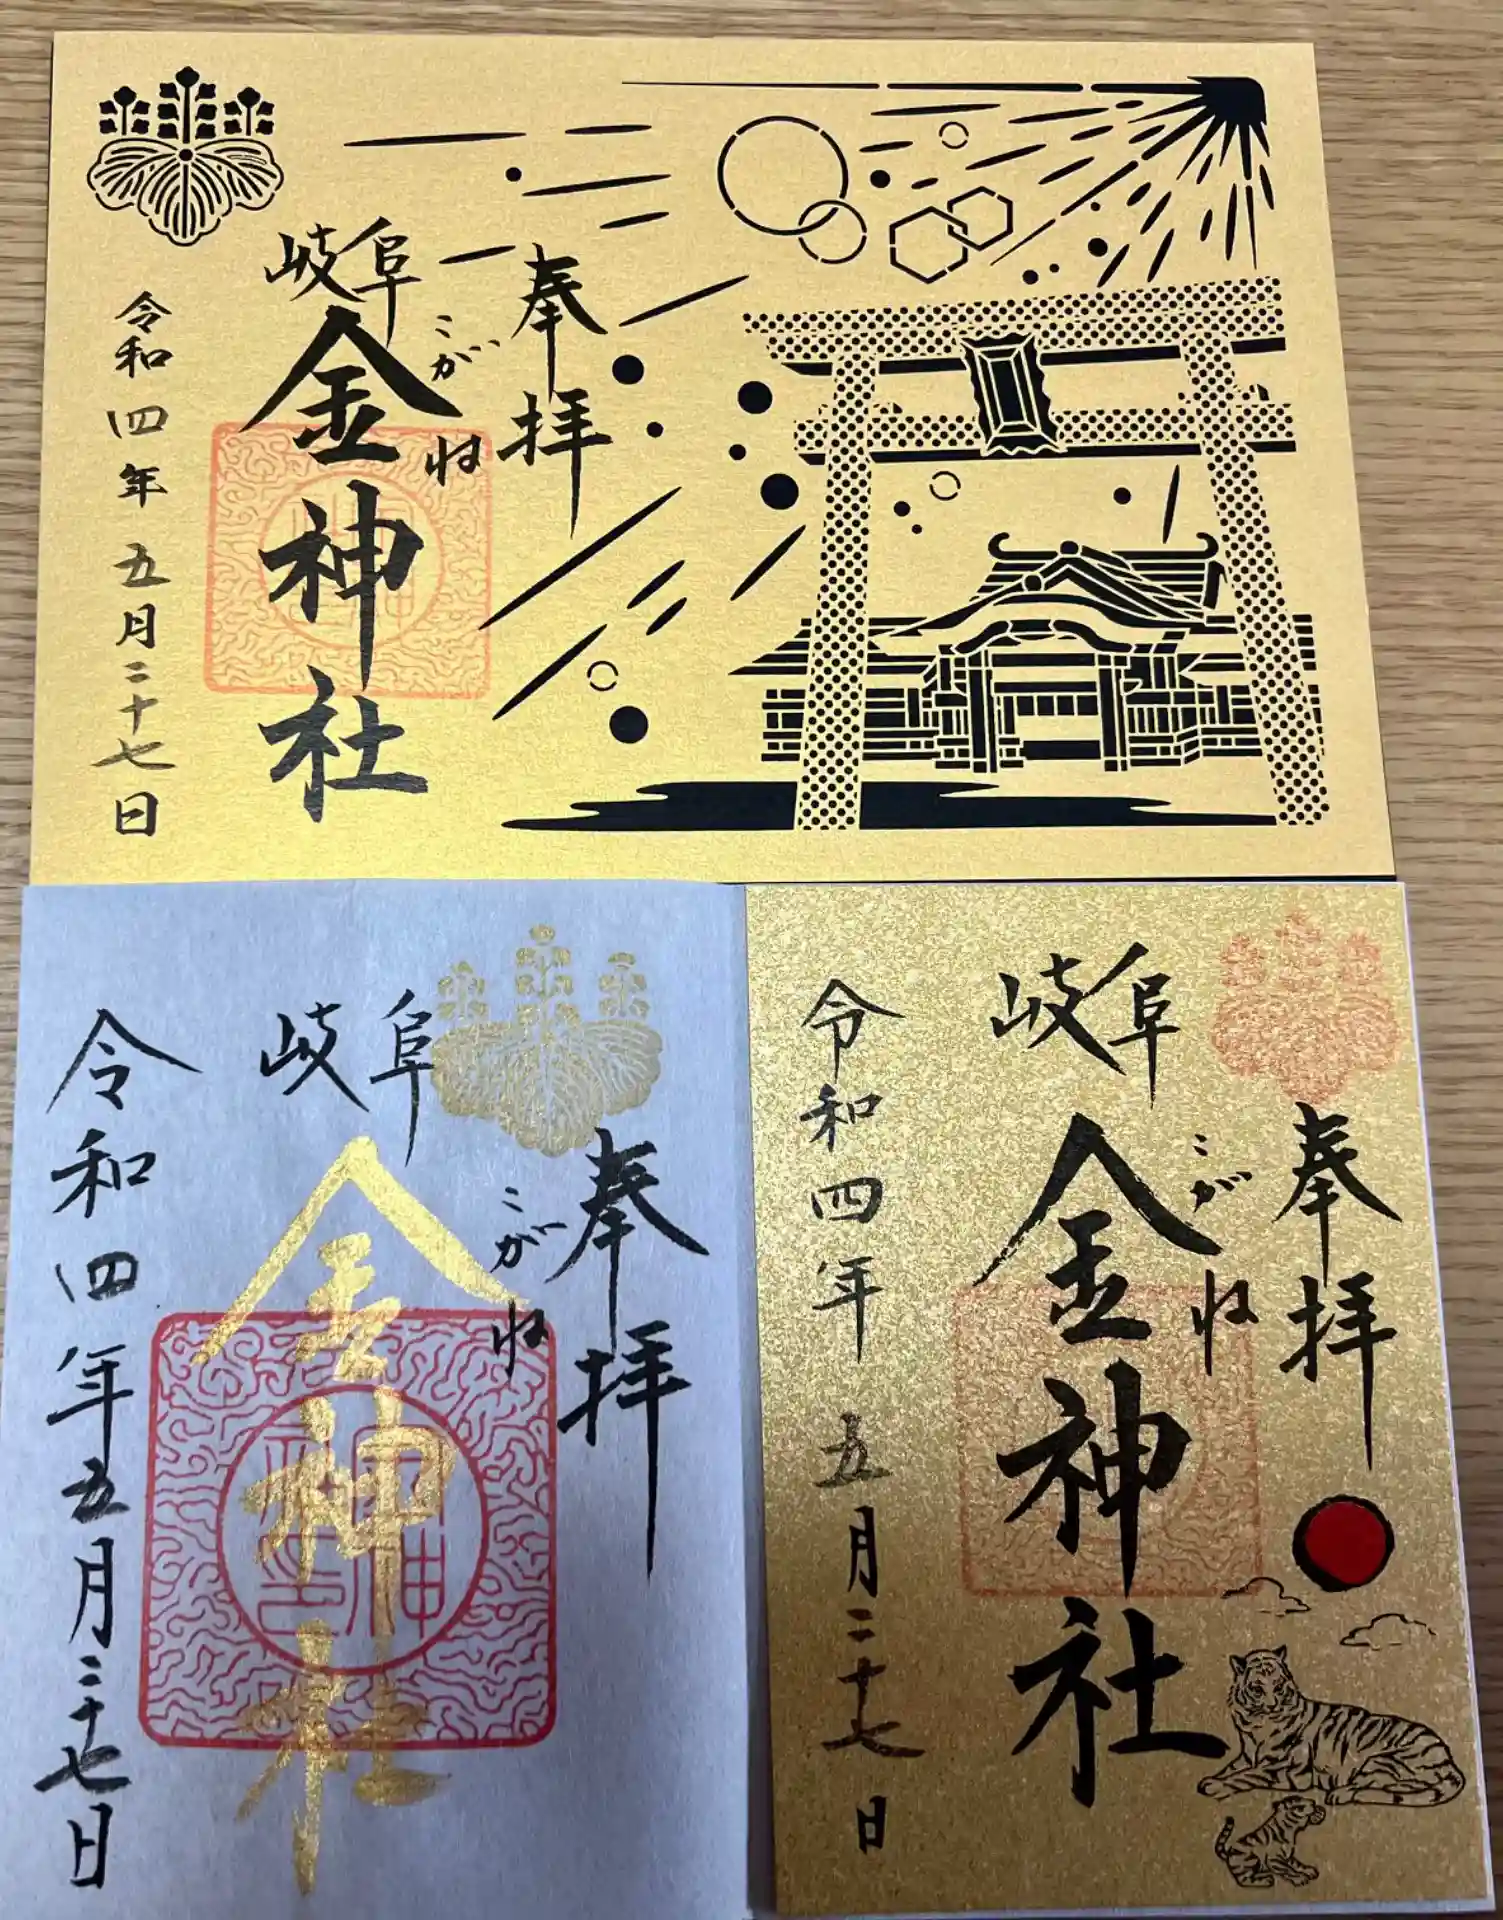 奉拝
岐阜
金神社
こがね
令和四年五月二十七日
奉拝
岐阜
金神社
こがね
令和四年五月二十七日
奉拝
岐阜
金神社
こがね
令和四年五月二十七日